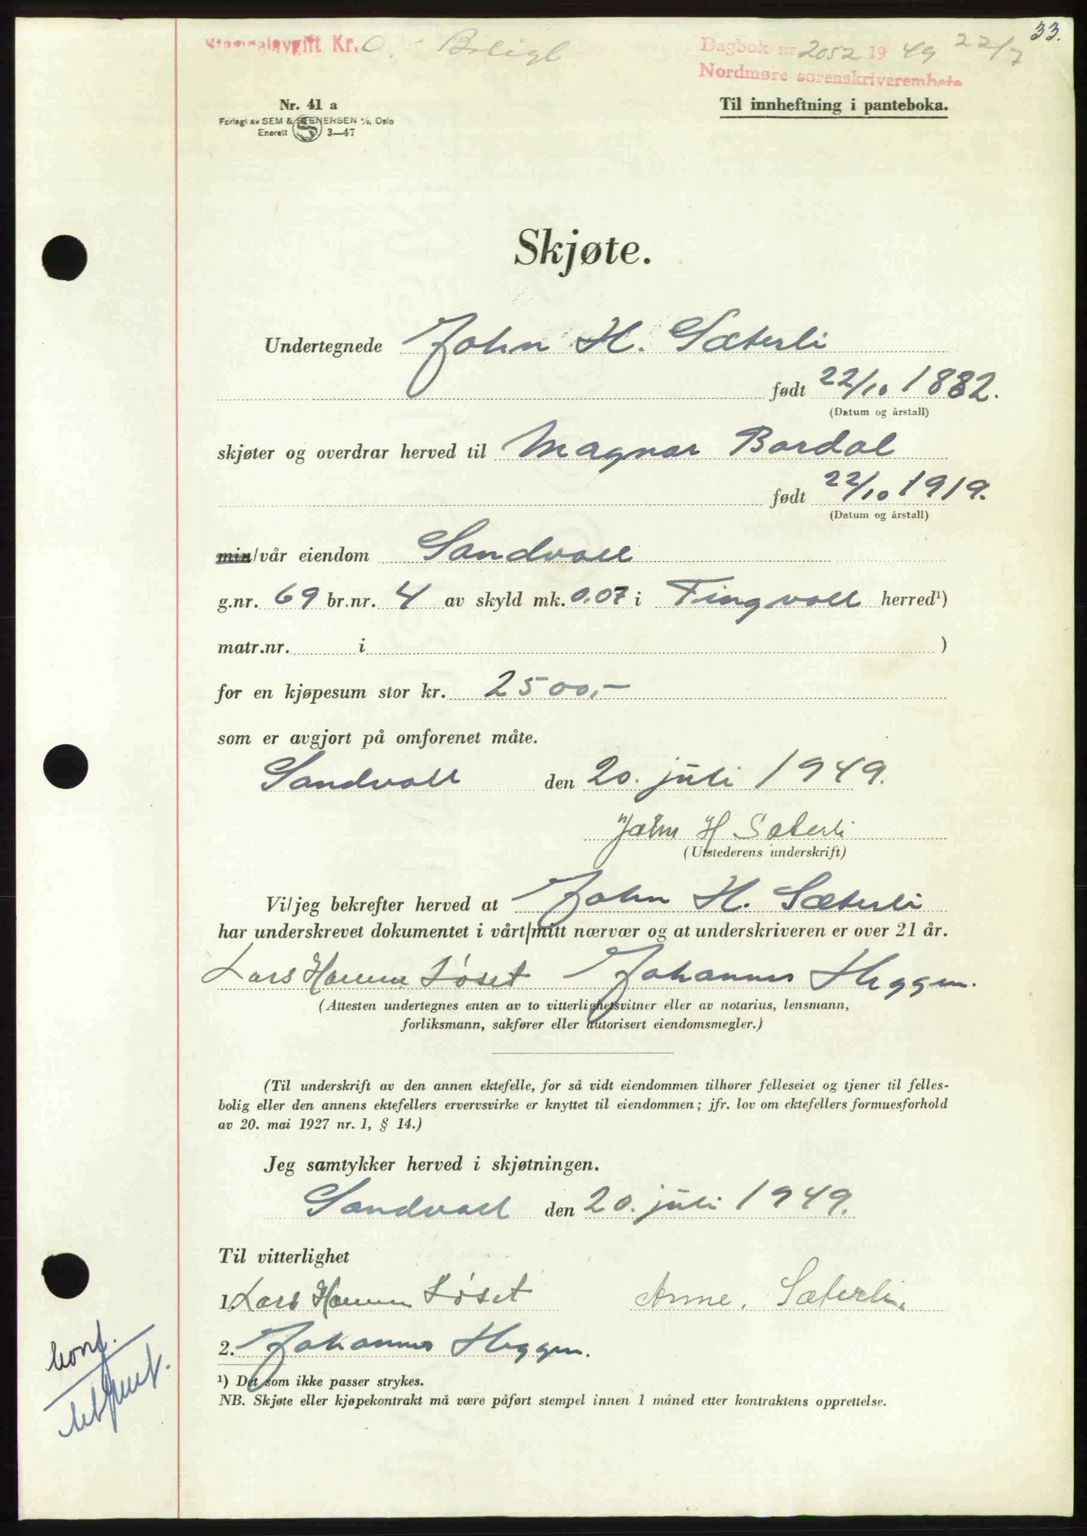 33.
Stempelavgift Kr. 0. - Boligl
Dagbok nr 2052 19 49 22/7
Nordmøre sorenskriverembete
Nr. 41 a
Til innheftning i panteboka.
Forlagt av SEM & STENERSEN A/S, Oslo
Enerett S 3—47
Skjøte.
Undertegnede John H. Sæterli
født 22/10 1882.
(Datum og årstall)
skjøter og overdrar herved til Magnar Bordal
født 22/10 1919.
(Datum og årstall)
min/vår eiendom Sandvoll
g.nr. 69 br.nr. 4 av skyld mk. 0.07 i Tingvoll herred¹)
matr.nr. i )
for en kjøpesum stor kr. 2500,-
som er avgjort på omforenet måte.
Sandvoll den 20. juli 1949.
John H Sæterli
(Utstederens underskrift)
Vi/jeg bekrefter herved at John H. Sæterli
har underskrevet dokumentet i vårt/mitt nærvær og at underskriveren er over 21 år.
Lars Løset Johannes Heggem.
(Attesten undertegnes enten av to vitterlighetsvitner eller av notarius, lensmann,
forliksmann, sakfører eller autorisert eiendomsmegler.)
(Til underskrift av den annen ektefelle, for så vidt eiendommen tilhører felleseiet og tjener til felles-
bolig eller den annens ektefellers ervervsvirke er knyttet til eiendommen; jfr. lov om ektefellers formuesforhold
av 20. mai 1927 nr. 1, § 14.)
Jeg samtykker herved i skjøtningen.
Sandvoll den 20. juli 1949.
Til vitterlighet
1. Lars Løset Anne. Sæterli.
2. Johannes Heggem.
¹) Det som ikke passer strykes.
NB. Skjøte eller kjøpekontrakt må være påført stempel innen 1 måned etter kontraktens opprettelse.
konf.